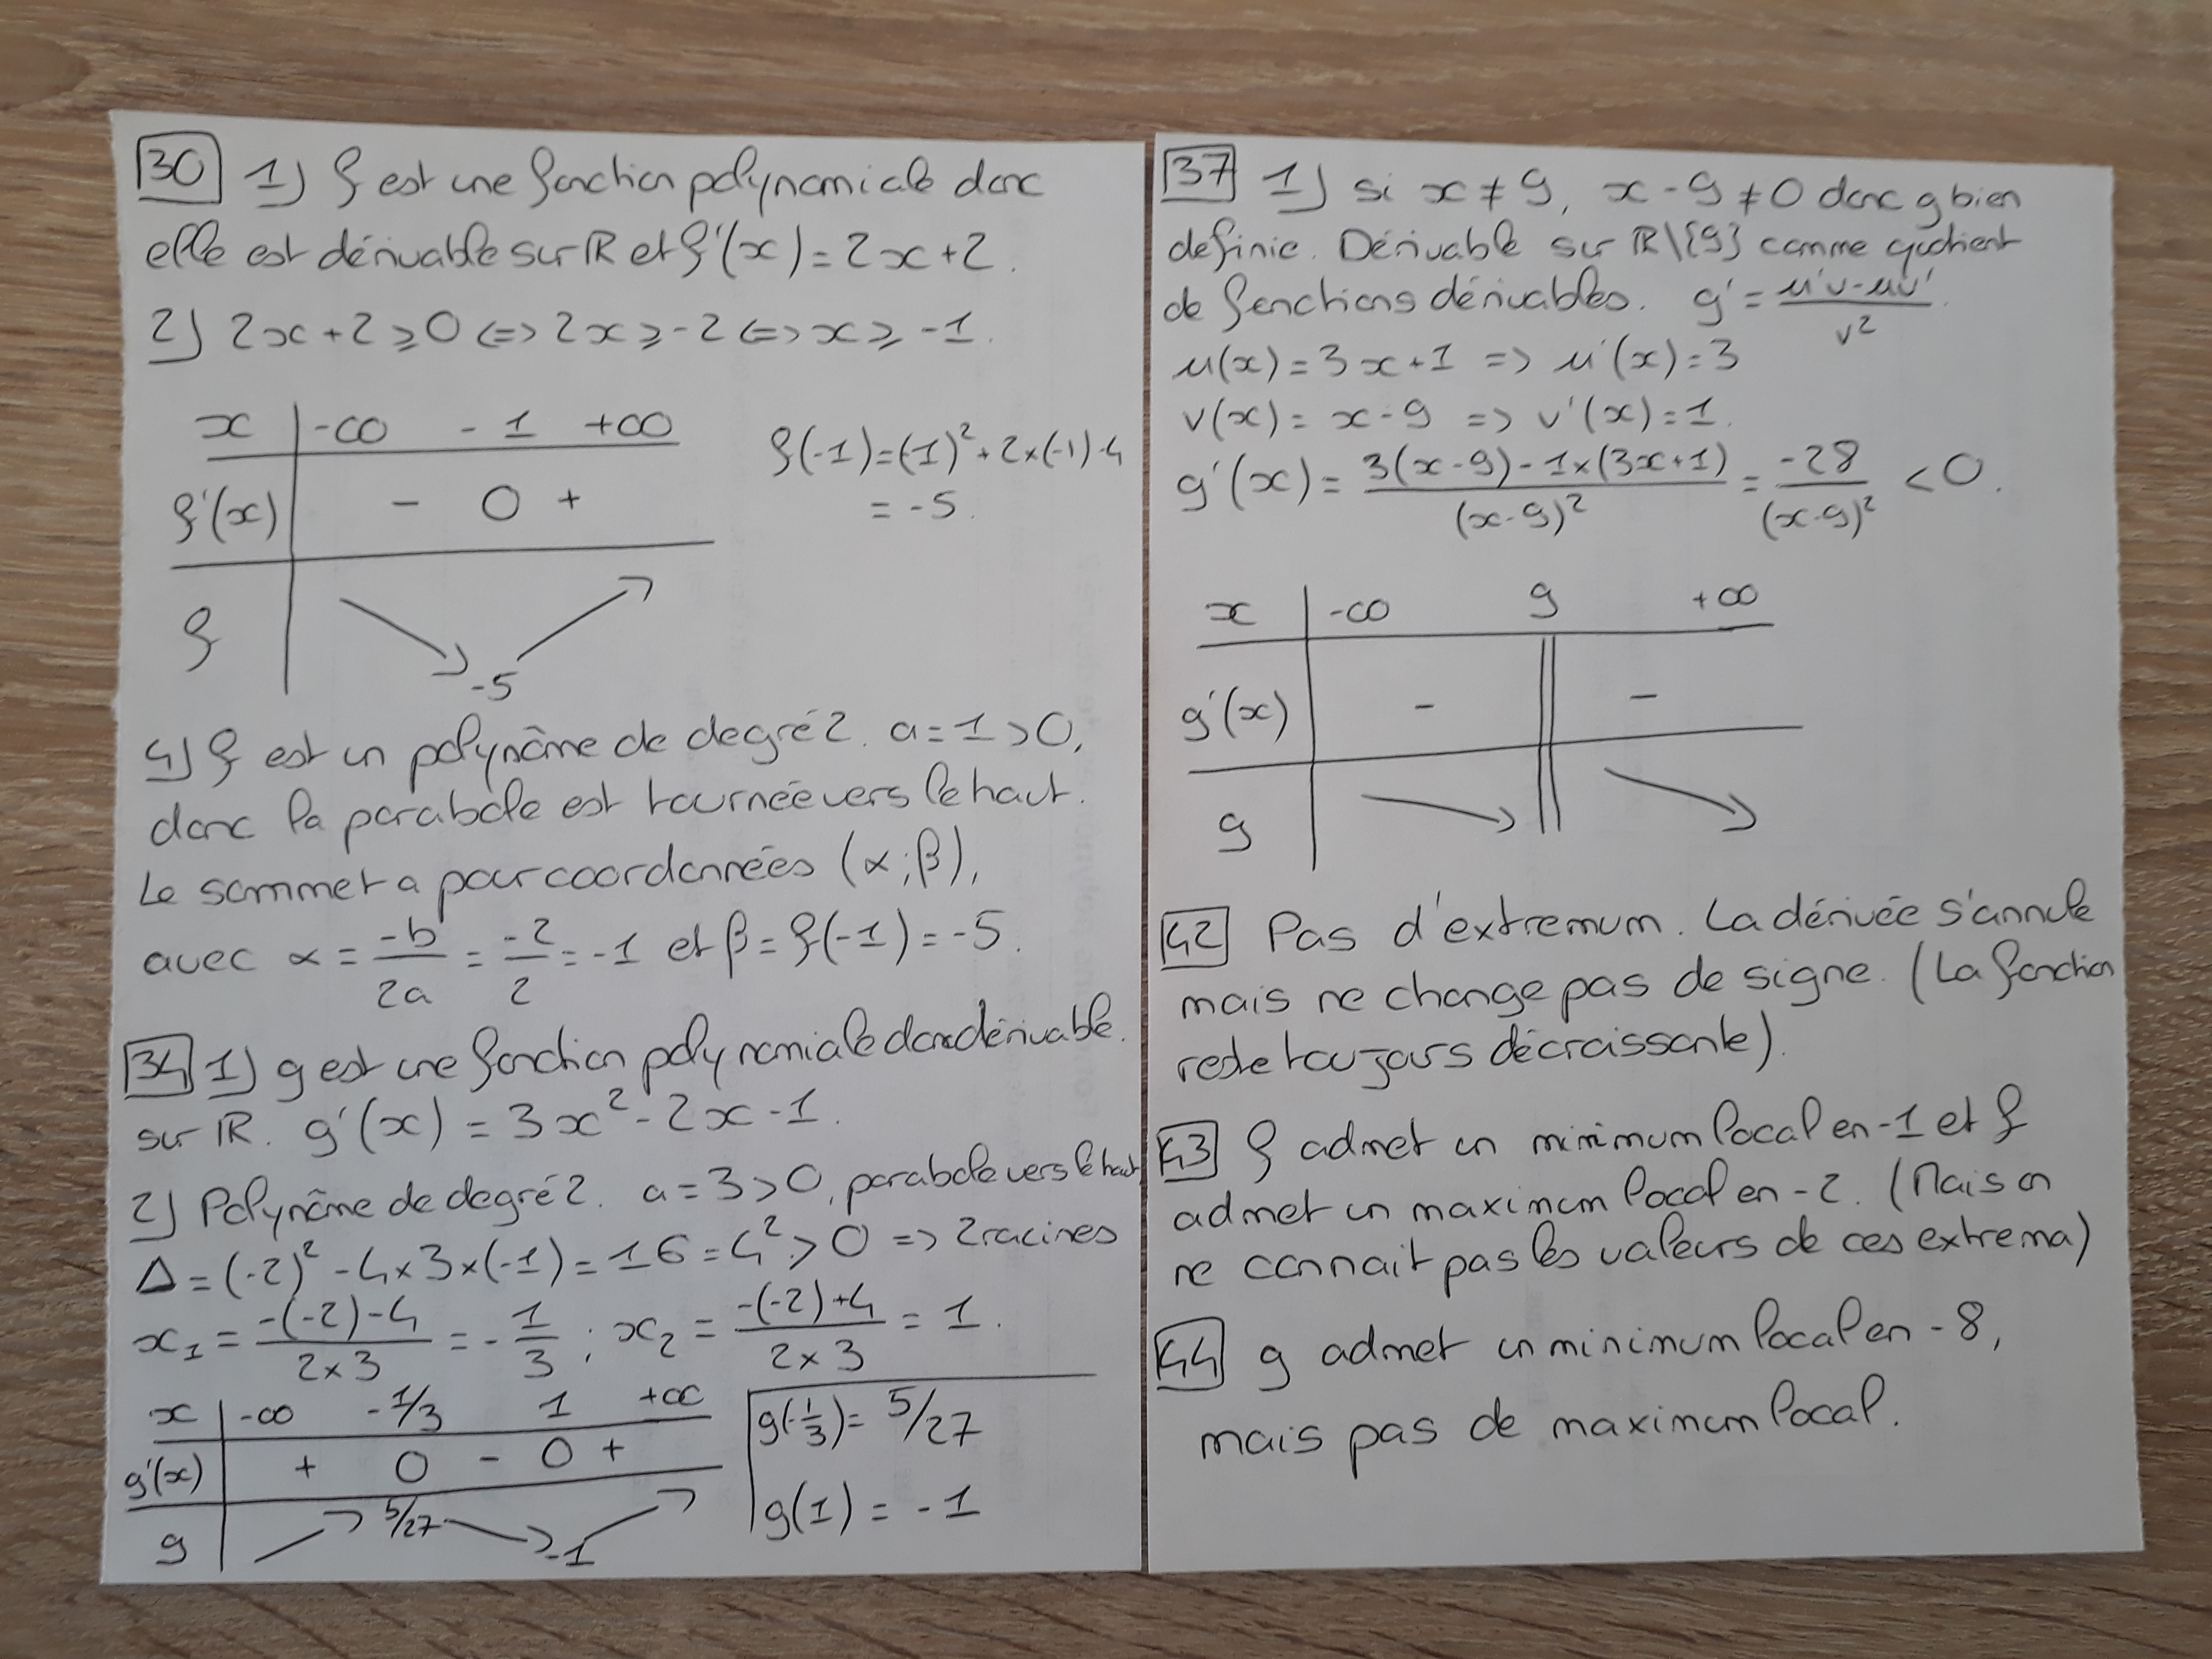 30 1) f est une fonction polynomiale donc
elle est dérivable sur ℝ et f'(x) = 2x + 2.
2) 2x + 2 ≥ 0 <=> 2x ≥ -2 <=> x ≥ -1.
x -∞ -1 +∞
f'(x) - 0 +
f -5
f(-1) = (-1)² + 2×(-1) - 4
= -5.
4) f est un polynôme de degré 2. a = 1 > 0,
donc la parabole est tournée vers le haut.
Le sommet a pour coordonnées (α ; β),
avec α = -b/2a = -2/2 = -1 et β = f(-1) = -5.
34 1) g est une fonction polynomiale donc dérivable.
sur ℝ. g'(x) = 3x² - 2x - 1.
2) Polynôme de degré 2. a = 3 > 0, parabole vers le haut
Δ = (-2)² - 4×3×(-1) = 16 = 4² > 0 => 2 racines
x₁ = (-(-2)-4)/(2×3) = -1/3 ; x₂ = (-(-2)+4)/(2×3) = 1.
x -∞ -1/3 1 +∞
g'(x) + 0 - 0 +
g 5/27 -1
g(-1/3) = 5/27
g(1) = -1
37 1) si x ≠ 9, x - 9 ≠ 0 donc g bien
definie. Dérivable sur ℝ\{9} comme quotient
de fonctions dérivables. g' = (u'v - uv')/v².
u(x) = 3x + 1 => u'(x) = 3
v(x) = x - 9 => v'(x) = 1.
g'(x) = (3(x-9) - 1×(3x+1))/(x-9)² = -28/(x-9)² < 0.
x -∞ 9 +∞
g'(x) - -
g
42 Pas d'extremum. La dérivée s'annule
mais ne change pas de signe. (La fonction
reste toujours décroissante).
43 f admet un minimum local en -1 et f
admet un maximum local en -2. (Mais on
ne connait pas les valeurs de ces extrema)
44 g admet un minimum local en -8,
mais pas de maximum local.